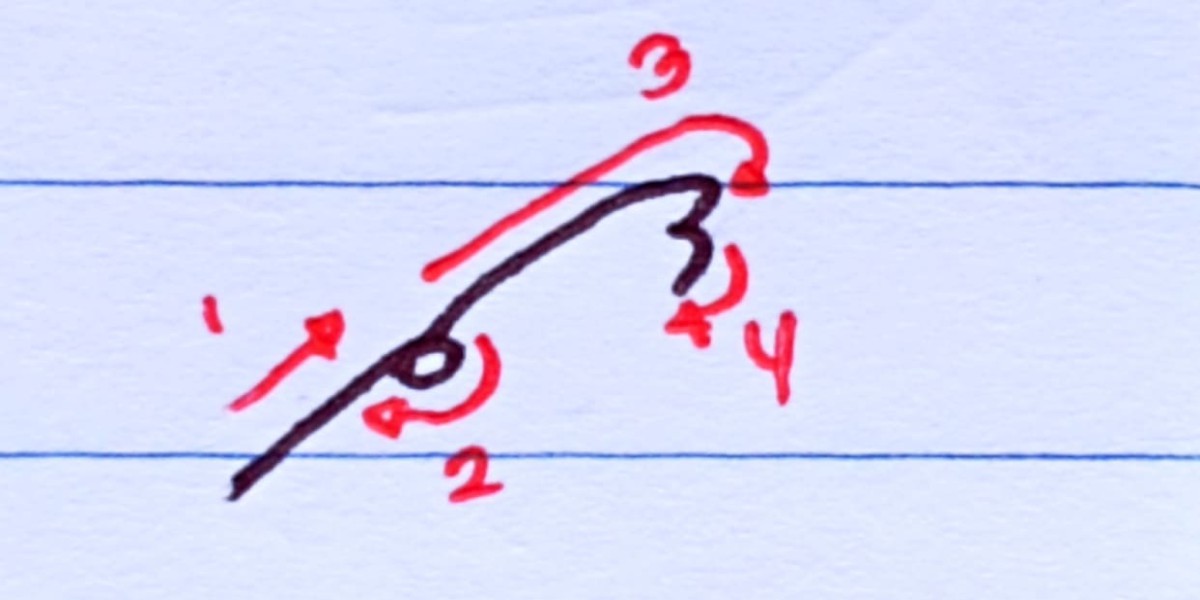 3
1
4
2